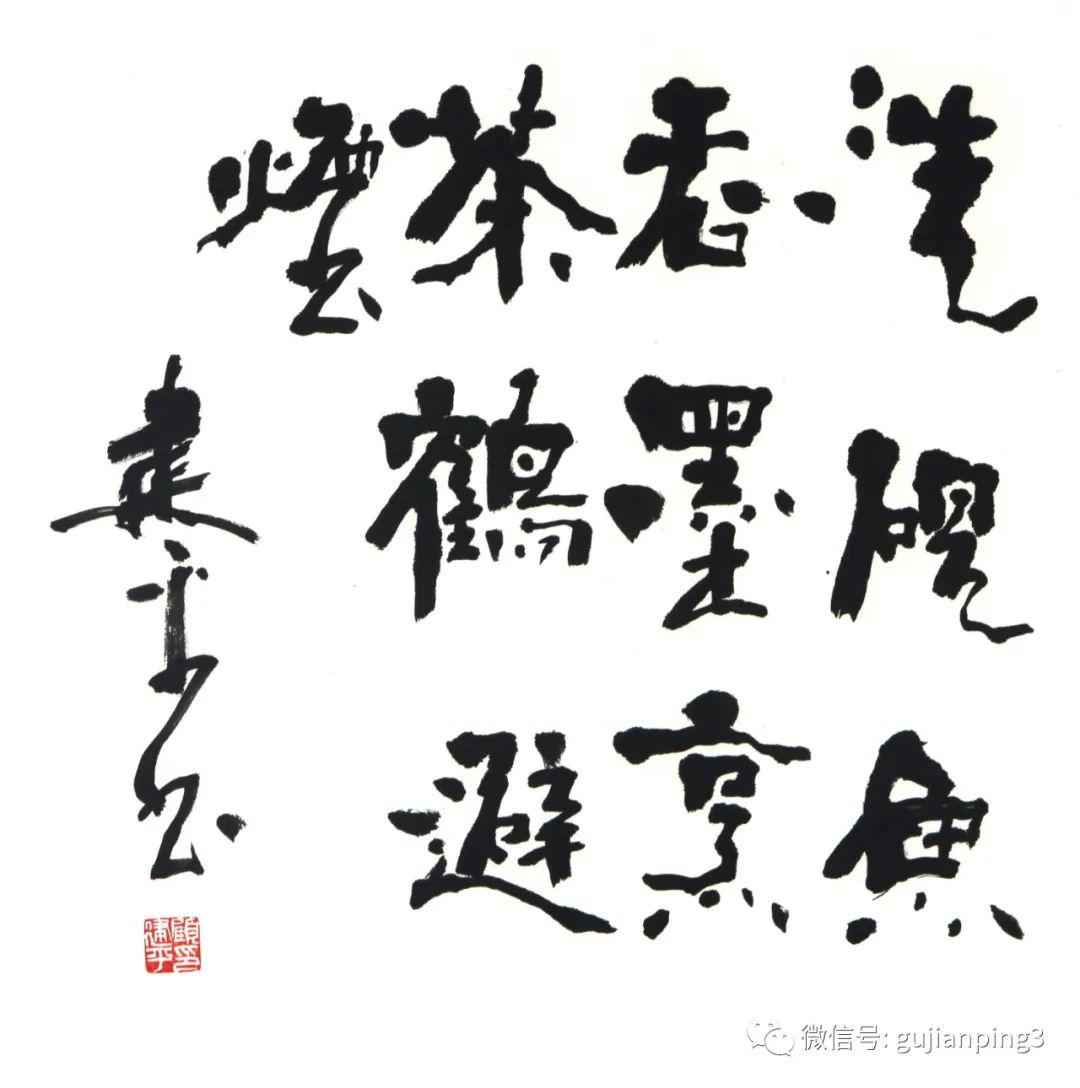 洗硯魚
吞墨烹
茶鶴避
煙
建平书
顧印建平
微信号: gujianping3